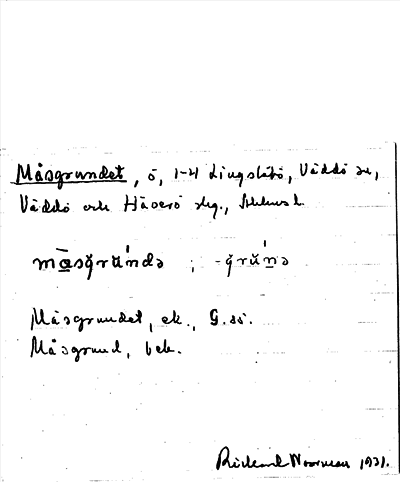 Måsgrundet, ö, 1-4 Lingslätö, Väddö sn,
Väddö och Häverö skg., Sthlms l.
må̄sgrundə ; -grunə
Måsgrundet, ek., G.
Måsgrund, bek.
Rickard Norrman 1931.